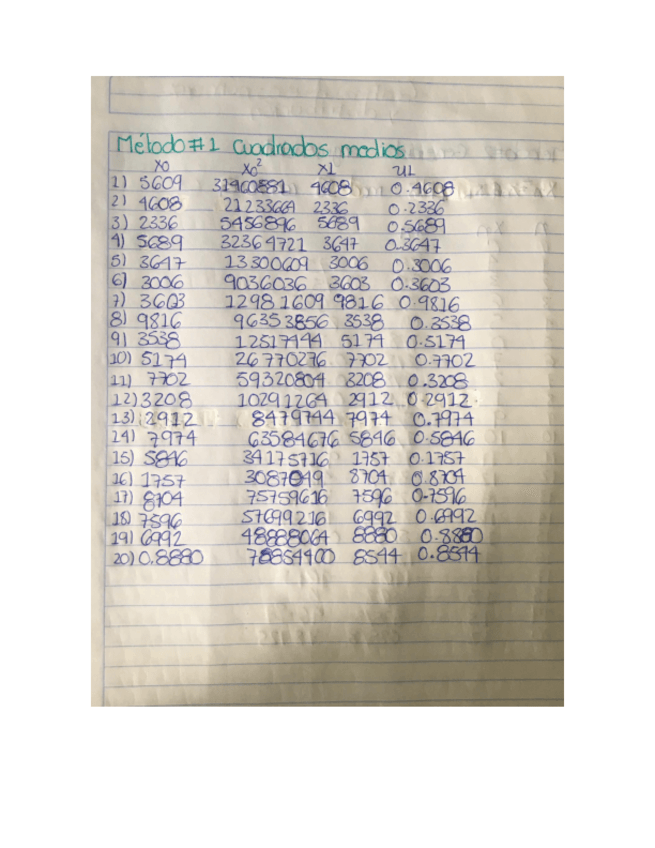 Método #1 cuadrados medios
X0 X0² X1 U1
1) 5609 31460881 4608 0.4608
2) 4608 21233664 2336 0.2336
3) 2336 5456896 5689 0.5689
4) 5689 32364721 3647 0.3647
5) 3647 13300609 3006 0.3006
6) 3006 9036036 3603 0.3603
7) 3603 12981609 9816 0.9816
8) 9816 96353856 3538 0.3538
9) 3538 12517444 5174 0.5174
10) 5174 26770276 7702 0.7702
11) 7702 59320804 3208 0.3208
12) 3208 10291264 2912 0.2912
13) 2912 8479744 7974 0.7974
14) 7974 63584676 5846 0.5846
15) 5846 34175716 1757 0.1757
16) 1757 3087049 8704 0.8704
17) 8704 75759616 7596 0.7596
18) 7596 57699216 6992 0.6992
19) 6992 48888064 8880 0.8880
20) 0.8880 78854400 8544 0.8544